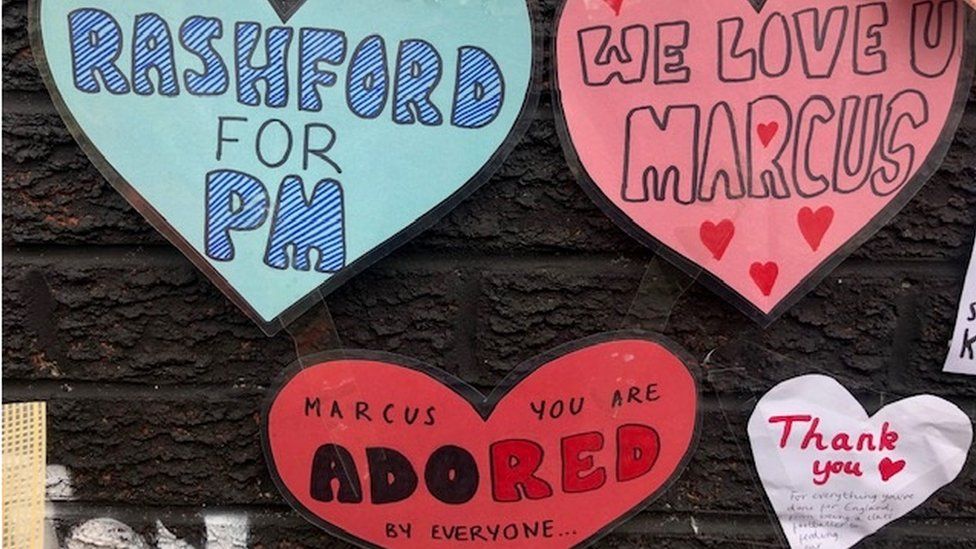 RASHFORD
FOR
PM
WE LOVE U
MARCUS
MARCUS YOU ARE
ADORED
BY EVERYONE...
Thank
you
For everything you've
done for England,
from being a class
footballer to
feeding
our